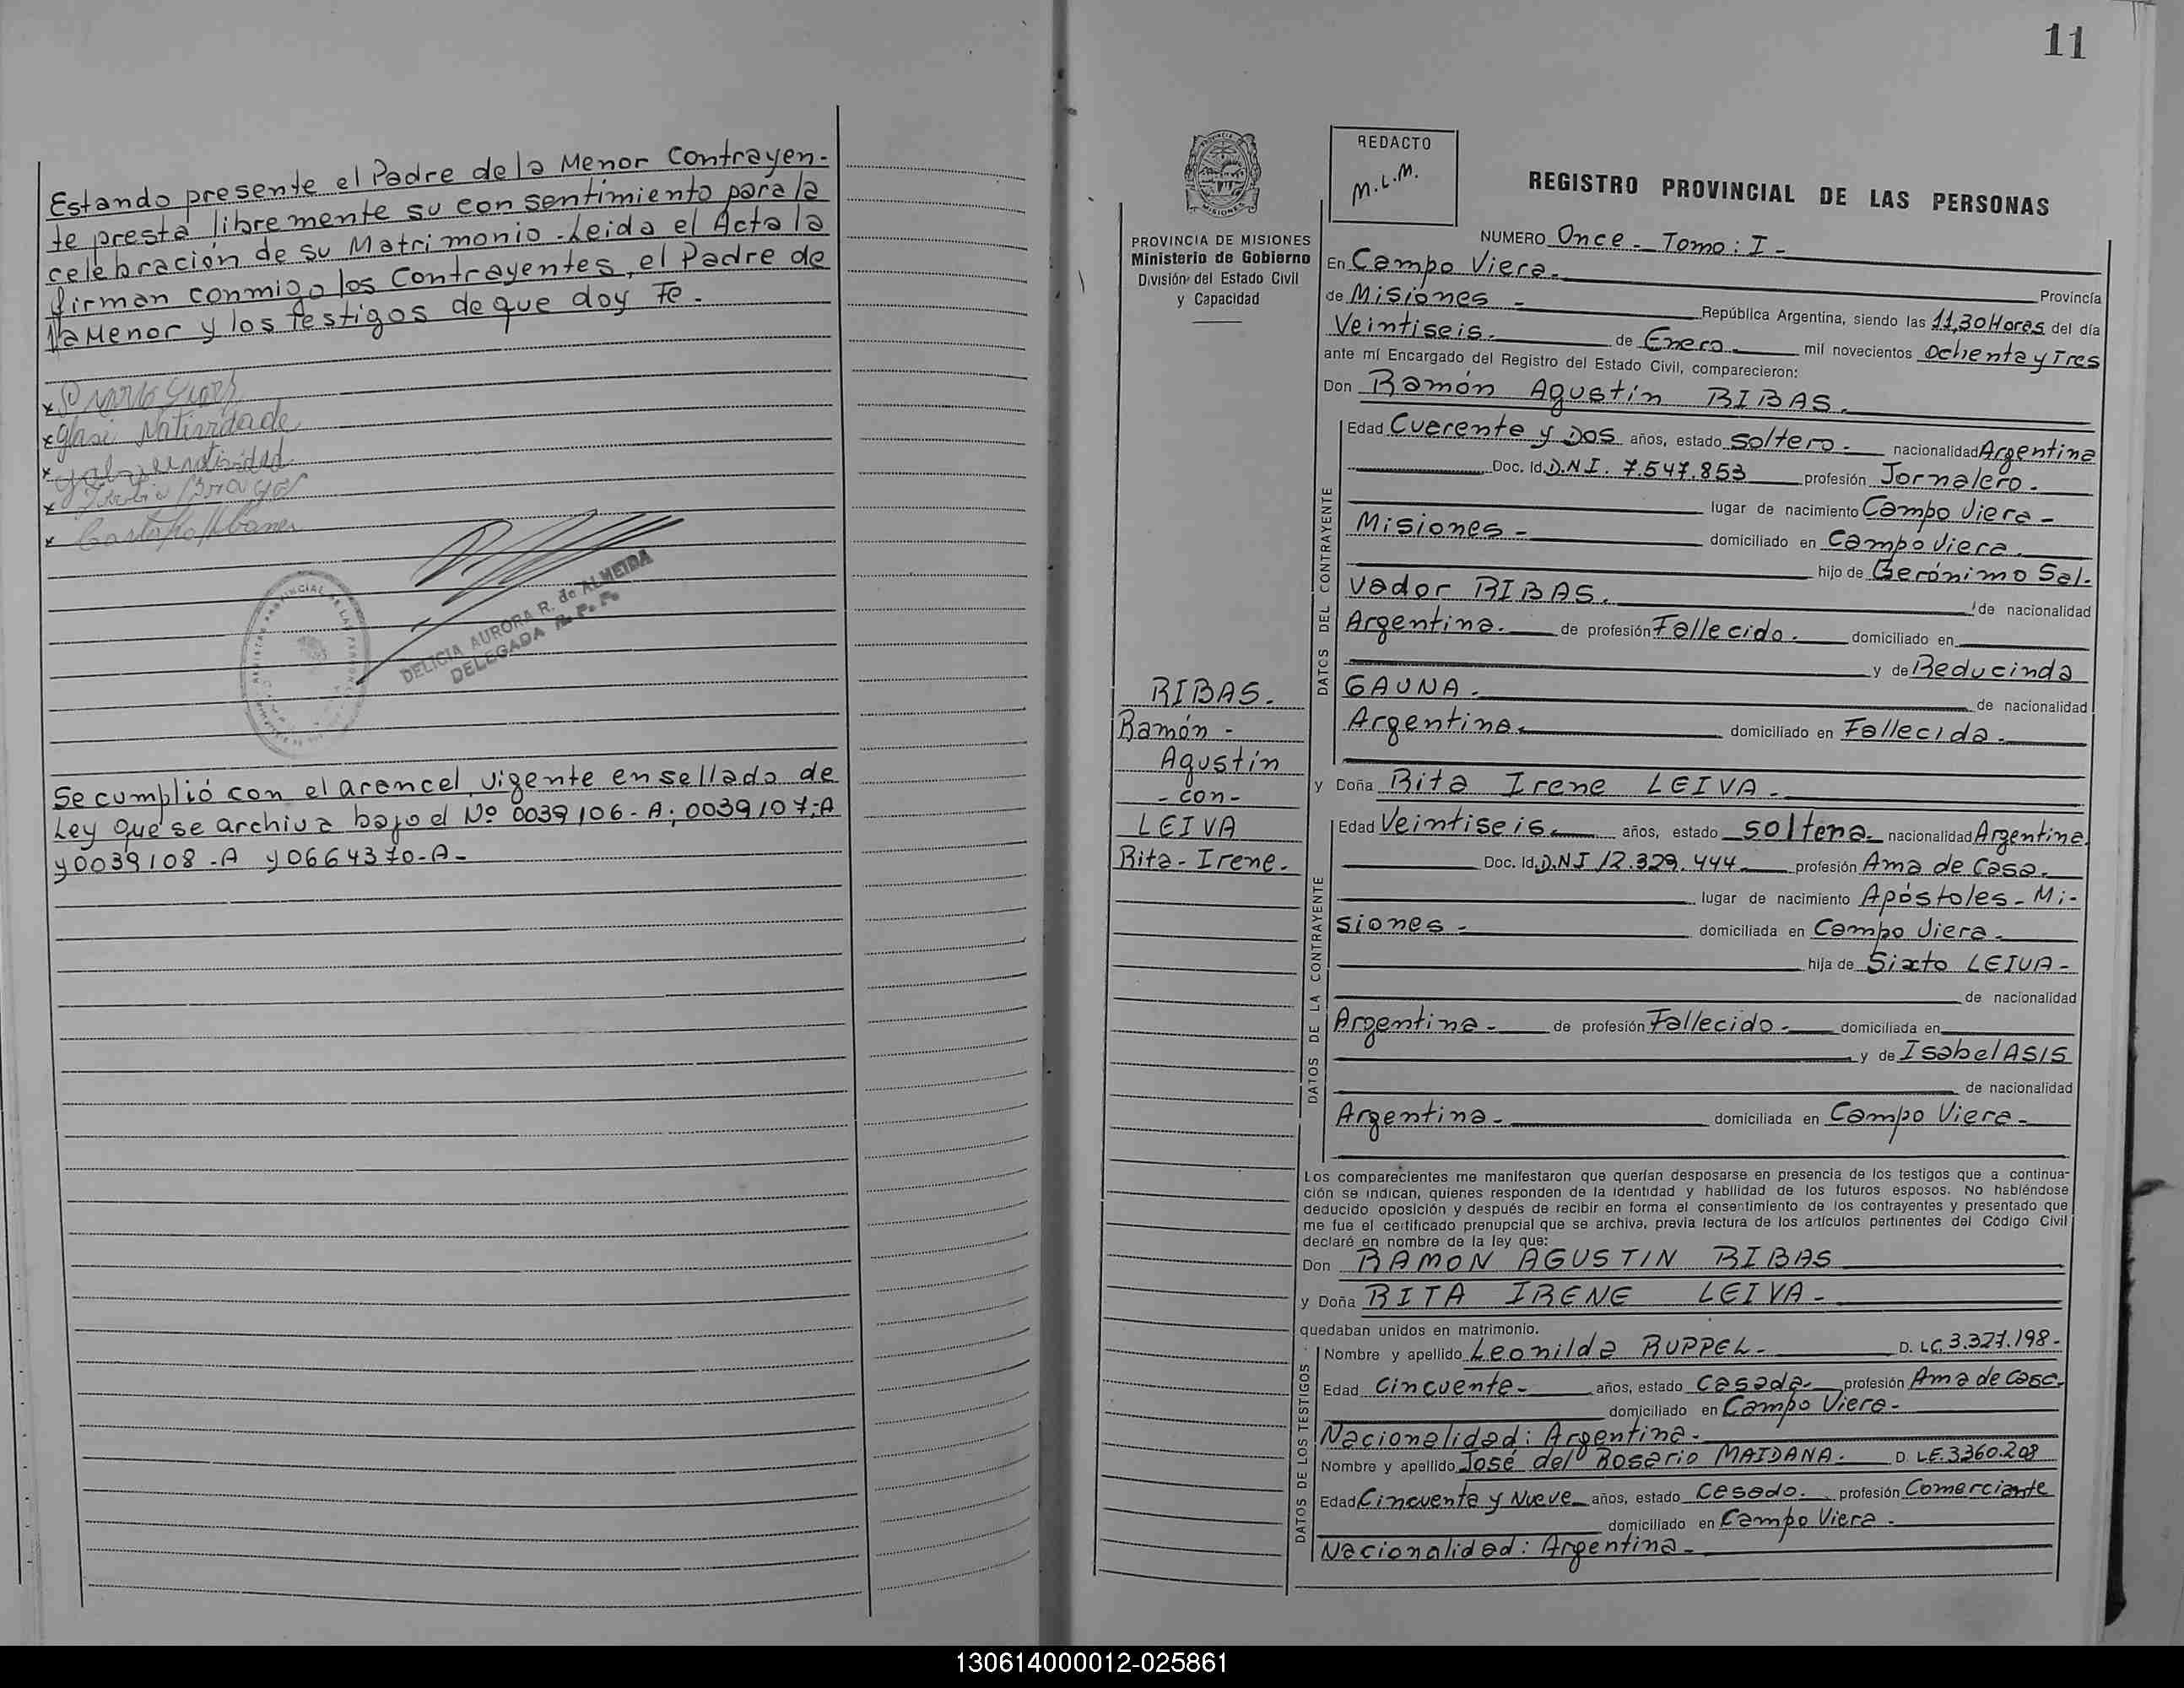 Estando presente el Padre de la Menor Contrayen-
te presta libremente su consentimiento para la
celebración de su Matrimonio - Leida el Acta la
firman conmigo los Contrayentes, el Padre de
la Menor y los testigos de que doy Fe.
DELICIA AURORA R. de ALMEIDA
DELEGADA R. P. P.
Se cumplió con el arancel vigente en sellado de
Ley que se archiva bajo el Nº 0039106-A; 0039107-A
y 0039108-A y 0664370-A-
11
PROVINCIA DE MISIONES
Ministerio de Gobierno
División del Estado Civil
y Capacidad
RIBAS.
Ramón -
Agustín
- con -
LEIVA
Rita - Irene.
REDACTO
M.L.M.
REGISTRO PROVINCIAL DE LAS PERSONAS
NUMERO Once - Tomo: I -
En Campo Viera. Provincia
de Misiones - República Argentina, siendo las 11,30 Horas del día
Veintiseis. de Enero mil novecientos Ochenta y Tres
ante mí Encargado del Registro del Estado Civil, comparecieron:
Don Ramón Agustín RIBAS.
DATOS DEL CONTRAYENTE
Edad Cuarenta y Dos años, estado soltero - nacionalidad Argentina
Doc. Id. D.N.I. 7.547.853 profesión Jornalero.
lugar de nacimiento Campo Viera -
Misiones - domiciliado en Campo Viera.
hijo de Gerónimo Sal-
vador RIBAS. de nacionalidad
Argentina. de profesión Fallecido. domiciliado en
y de Reducinda
GAUNA. de nacionalidad
Argentina. domiciliado en Fallecida.
y Doña Rita Irene LEIVA -
DATOS DE LA CONTRAYENTE
Edad Veintiseis años, estado soltera nacionalidad Argentina.
Doc. Id. D.N.I 12.329.444 profesión Ama de Casa.
lugar de nacimiento Apóstoles - Mi-
siones - domiciliada en Campo Viera.
hija de Sixto LEIVA -
de nacionalidad
Argentina - de profesión Fallecido - domiciliada en
y de Isabel ASIS
de nacionalidad
Argentina - domiciliada en Campo Viera -
Los comparecientes me manifestaron que querían desposarse en presencia de los testigos que a continua-
ción se indican, quienes responden de la identidad y habilidad de los futuros esposos. No habiéndose
deducido oposición y después de recibir en forma el consentimiento de los contrayentes y presentado que
me fue el certificado prenupcial que se archiva, previa lectura de los artículos pertinentes del Código Civil
declaré en nombre de la ley que:
Don RAMON AGUSTIN RIBAS
y Doña RITA IRENE LEIVA -
quedaban unidos en matrimonio.
DATOS DE LOS TESTIGOS
Nombre y apellido Leonilda RUPPEL - D. LC. 3.327.198-
Edad Cincuenta - años, estado Casada - profesión Ama de Casa.
domiciliado en Campo Viera -
Nacionalidad: Argentina.
Nombre y apellido José del Rosario MAIDANA. D. LE. 3360.208
Edad Cincuenta y Nueve años, estado Casado. profesión Comerciante
domiciliado en Campo Viera -
Nacionalidad: Argentina -
130614000012-025861